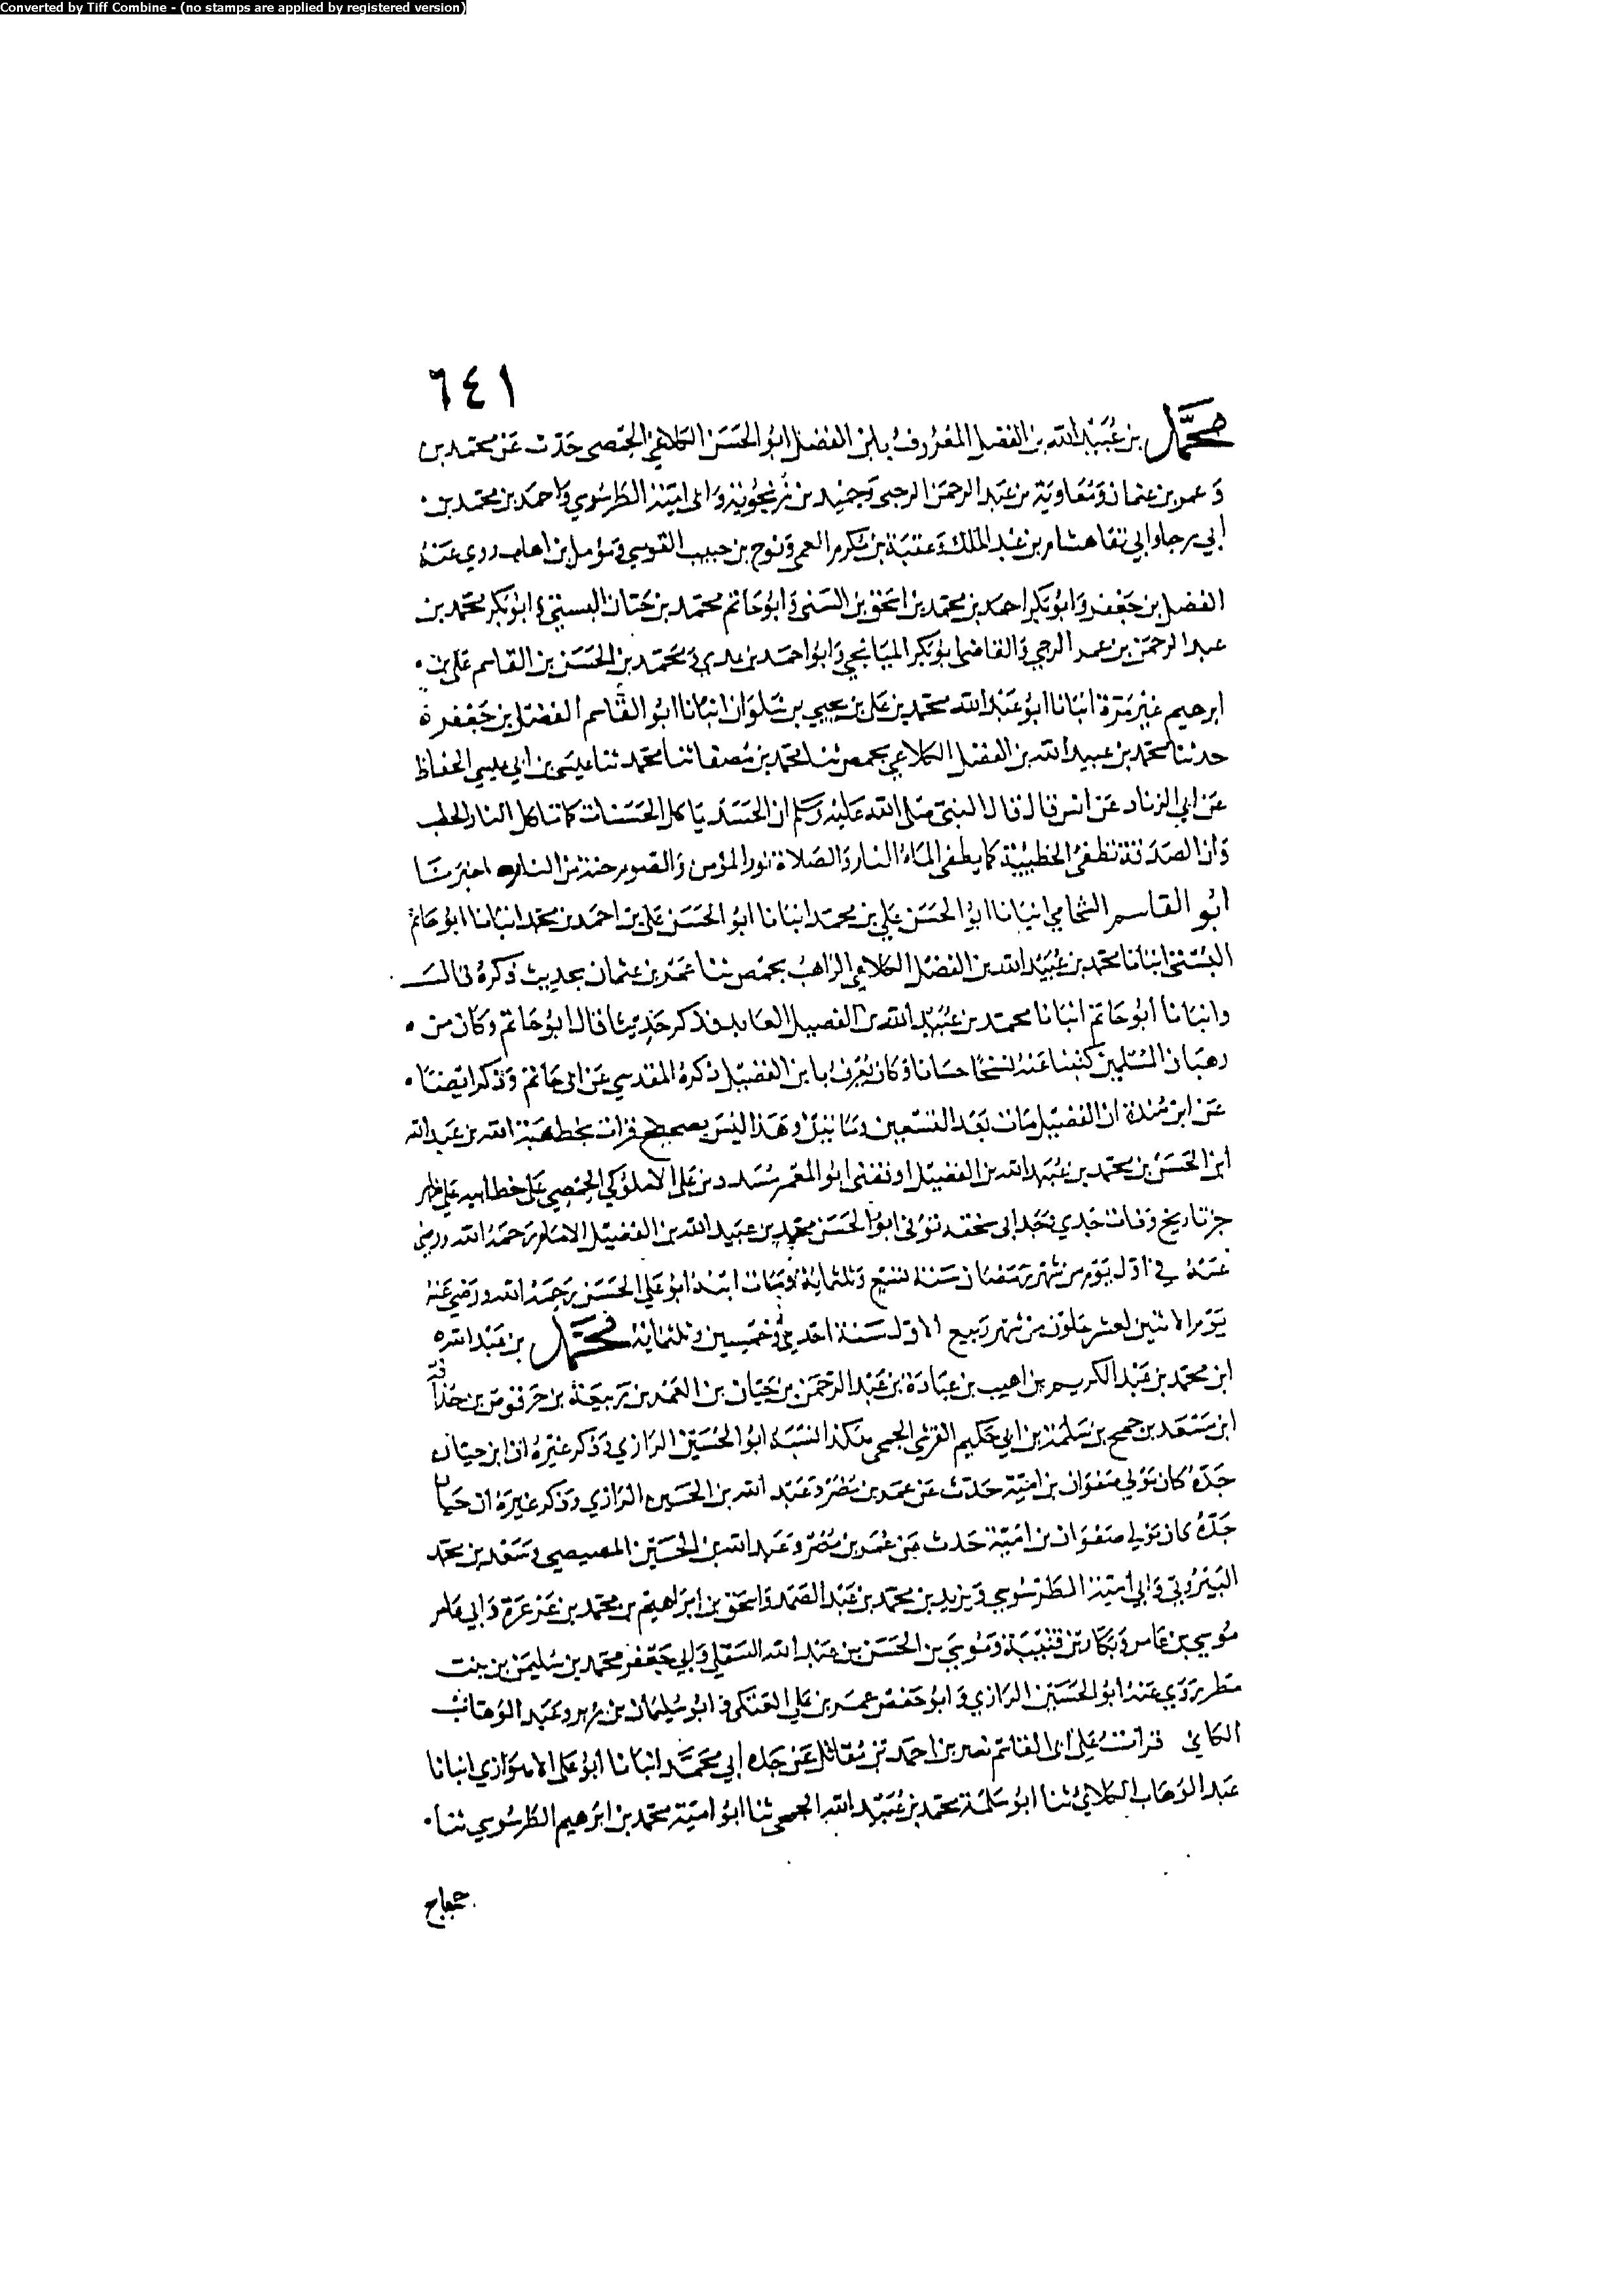 Converted by Tiff Combine - (no stamps are applied by registered version)
٦٤١
محمد بن عبيد الله بن الفضل المعروف بابن الفضل ابو الحسن الكلاعي الحمصي حدث عن محمد بن
وعمرو بن عثمان ومعاوية بن عبد الرحمن الرحبي وحميد بن زنجويه وابي امية الطرسوسي واحمد بن محمد بن
ابي رجا وابي تقا هشام بن عبد الملك وعقبة بن مكرم العمي ونوح بن حبيب القومسي ومؤمل بن اهاب روي عنه
الفضل بن جعفر وابو بكر احمد بن محمد بن اسحق بن السني وابو حاتم محمد بن حبان البستي وابو بكر محمد بن
عبد الرحمن بن عمر الرحبي والقاضي ابو بكر الميانجي وابو احمد بن عدي ومحمد بن الحسن بن القاسم علي بن
ابرهيم غير مرة انبانا ابو عبد الله محمد بن علي بن يحيي بن سلوان انبانا ابو القاسم الفضل بن جعفر
حدثنا محمد بن عبيد الله بن الفضل الكلاعي بحمص ثنا محمد بن مصفا ثنا محمد ثنا عيسي بن ابي عيسي الحفاظ
عن ابي الزناد عن انس قال قال النبي صلي الله عليه وسلم ان الحسد ياكل الحسنات كما تاكل النار الحطب
وان الصدقة تطفئ الخطيئة كما يطفي الماء النار والصلاة نور المؤمن والصوم جنة من النار اخبرنا
ابو القاسم الشحامي انبانا ابو الحسن علي بن محمد انبانا ابو الحسن علي بن احمد بن محمد انبانا ابو حاتم
البستي انبانا محمد بن عبيد الله بن الفضل الكلاعي الراهب بحمص ثنا عمرو بن عثمان بحديث ذكره في
وانبانا ابو حاتم انبانا محمد بن عبيد الله بن الفضيل العابد فذكر حديثا قال ابو حاتم وكان من
رهبان المسلمين كتبنا عنه نسخا حسانا وكان يعرف بابن الفضيل ذكره المقدسي عن ابي حاتم وذكر ايضا
عن ابن مندة ان الفضيل مات بعد التسعين ومائتين وهذا ليس بصحيح قرات بخط هبة الله بن عبد الله
ابن الحسن بن محمد بن عبيد الله بن الفضيل اوقفني ابو المعمر مسدد بن علي الاملوكي الحمصي علي خط ابيه علي ظهر
جز تاريخ وفات جدي بخط ابي سخقه توفي ابو الحسن محمد بن عبيد الله بن الفضيل الامام رحمه الله ورضي
عنه في اول يوم من شهر رمضان سنة تسع وثلثماية ومات ابنه ابو علي الحسن رحمه الله ورضي عنه
يوم الاثنين لعشر خلون من شهر ربيع الاول سنة احدي وخمسين وثلثماية محمد بن عبد الله
ابن محمد بن عبد الكريم بن اهيب بن عبادة بن عبد الرحمن بن حيان بن العمد بن ربيعة بن حرقوص بن حذافة
ابن سعد بن جمح بن سلمة بن ابي حكيم القرشي الجمحي هكذا نسبه ابو الحسين الرازي وذكر غيره ان ابن حيان
جده كان مولي صفوان بن امية حدث عن عمد بن مضر وعبد الله بن الحسين الرازي وذكر غيره ان حيا
جده كان مولي صفوان بن امية حدث عن عمر بن مضر وعبد الله بن الحسين المصيصي وسعد بن محمد
البيروتي وابي امية الطرسوسي ويزيد بن محمد بن عبد الصمد واسحق بن ابراهيم بن محمد بن عرعرة وابي عامر
موسي بن عامر وبكار بن قتيبة وموسي بن الحسن بن عبد الله السقلي وابي جعفر محمد بن سليمن بن بنت
مطر روي عنه ابو الحسين الرازي وابو حفص عمر بن علي العتكي وابو سليمان بن زبر وعبد الوهاب
الكلابي قرات علي ابي القاسم نصر بن احمد بن مقاتل عن جده ابي محمد انبانا ابو علي الاهوازي انبانا
عبد الوهاب الكلابي ثنا ابو سلمة محمد بن عبيد الله الجمحي ثنا ابو امية محمد بن ابرهيم الطرسوسي ثنا
حجاج